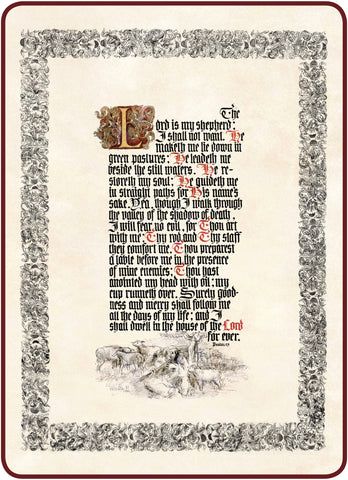 The
Lord is my shepherd;
I shall not want. He
maketh me lie down in
green pastures; He leadeth me
beside the still waters. He re-
storeth my soul; He guideth me
in straight paths for His name's
sake. Yea, though I walk through
the valley of the shadow of death,
I will fear no evil, for Thou art
with me; Thy rod and Thy staff
they comfort me. Thou preparest
a table before me in the presence
of mine enemies; Thou hast
anointed my head with oil; my
cup runneth over. Surely good-
ness and mercy shall follow me
all the days of my life; and I
shall dwell in the house of the Lord
for ever.
Psalm 23